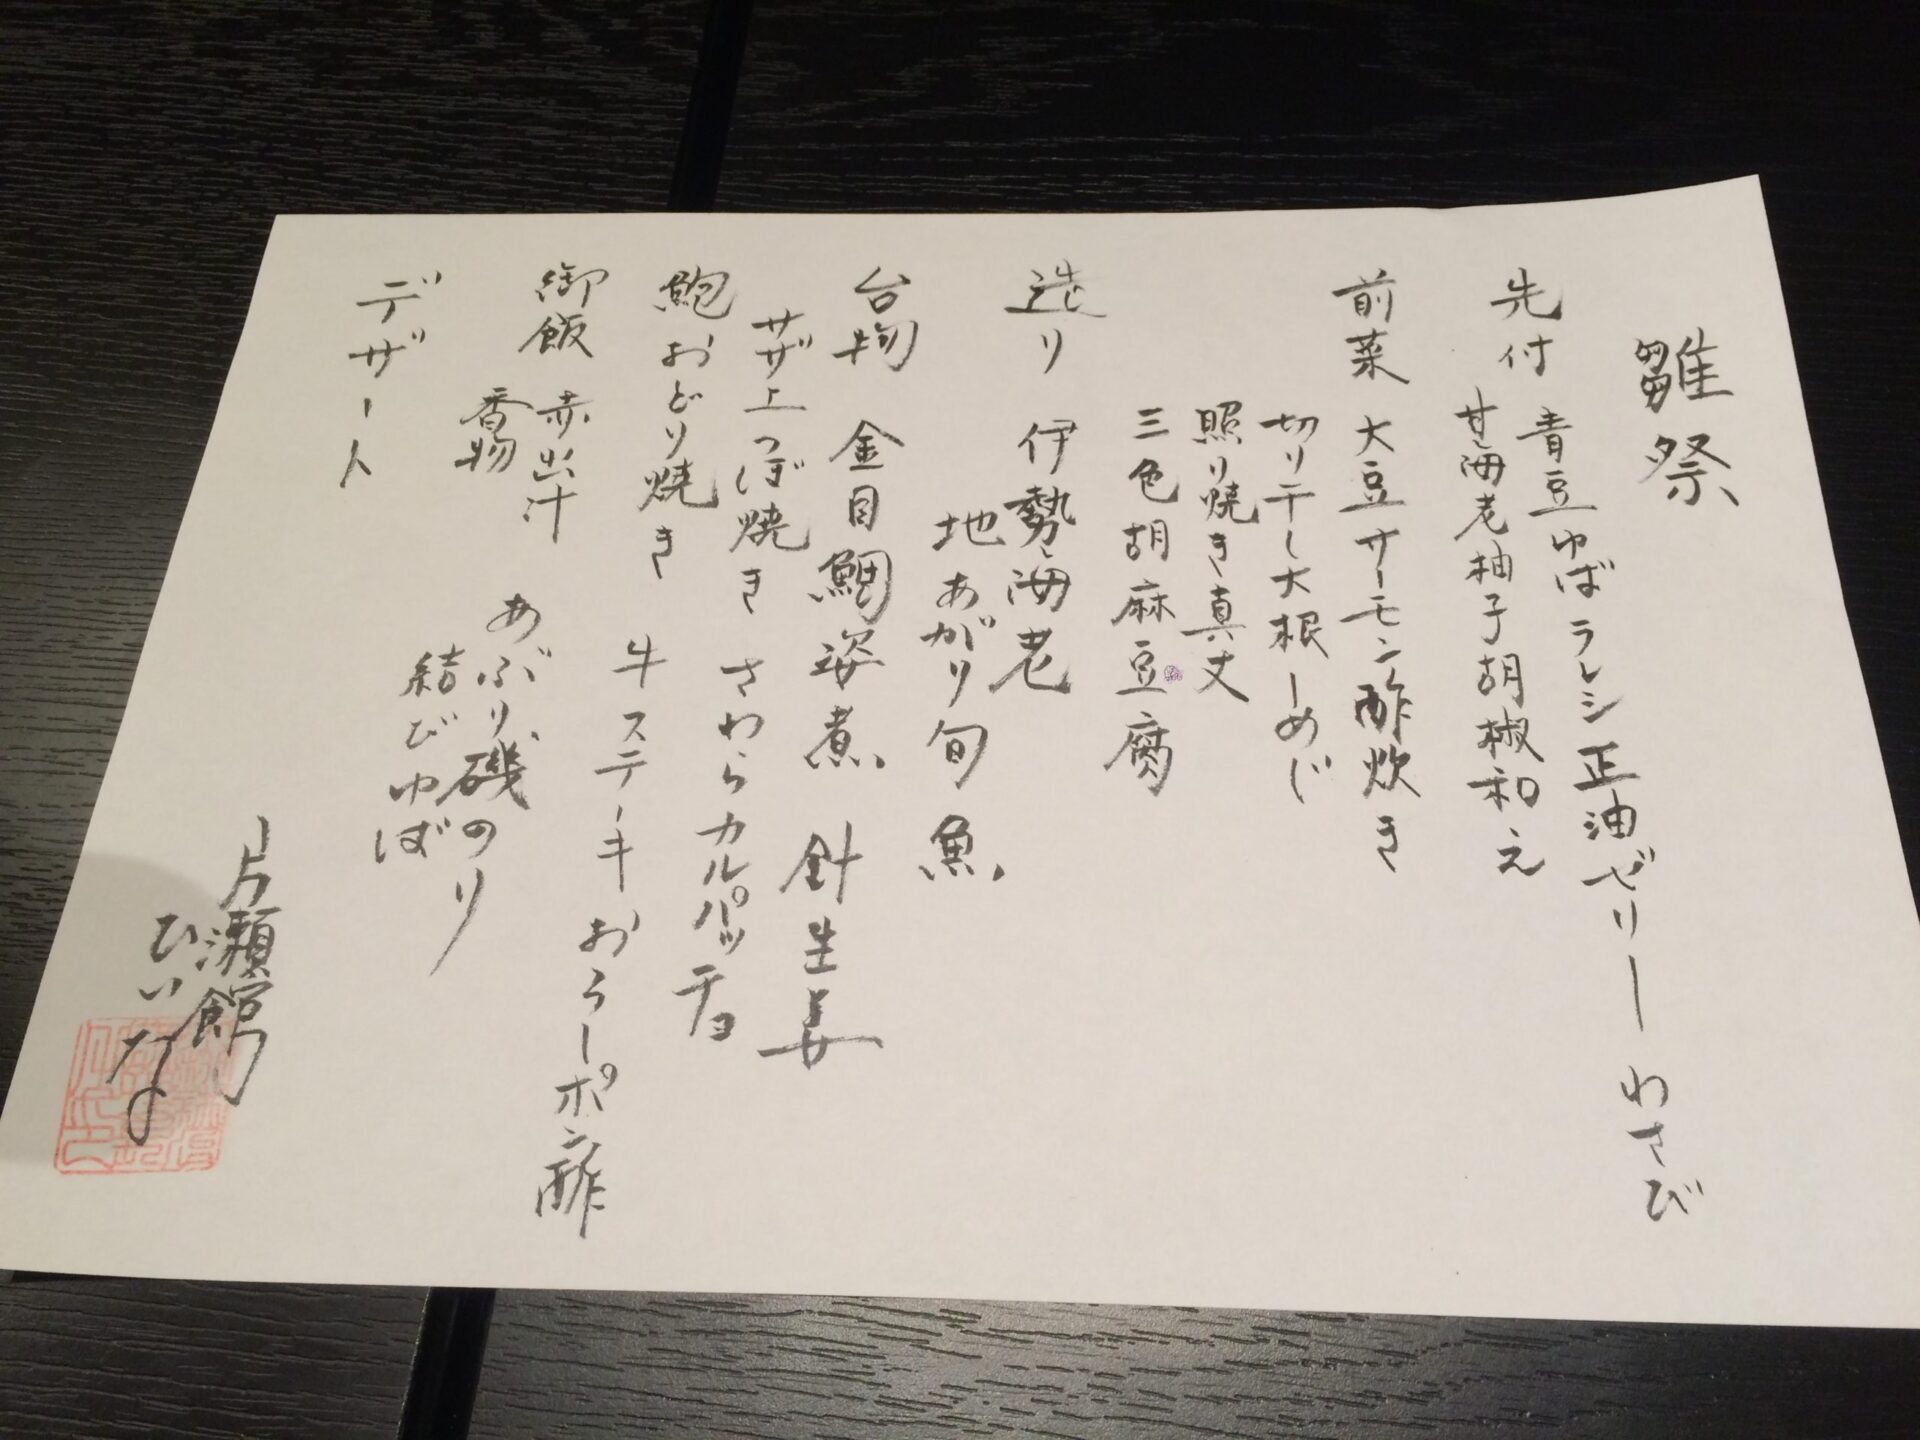 雛祭
先付 青豆ゆば カラシ正油ゼリー わさび
甘海老柚子胡椒和え
前菜 大豆サーモン酢炊き
切り干し大根しめじ
照り焼き真丈
三色胡麻豆腐
造り 伊勢海老
地あがり旬魚
台物 金目鯛姿煮 針生姜
サザエつぼ焼き さわらカルパッチョ
鮑おどり焼き 牛ステーキおろしポン酢
御飯 赤出汁 あぶり磯のり
香物 結びゆば
デザート
片瀬館
ひいな